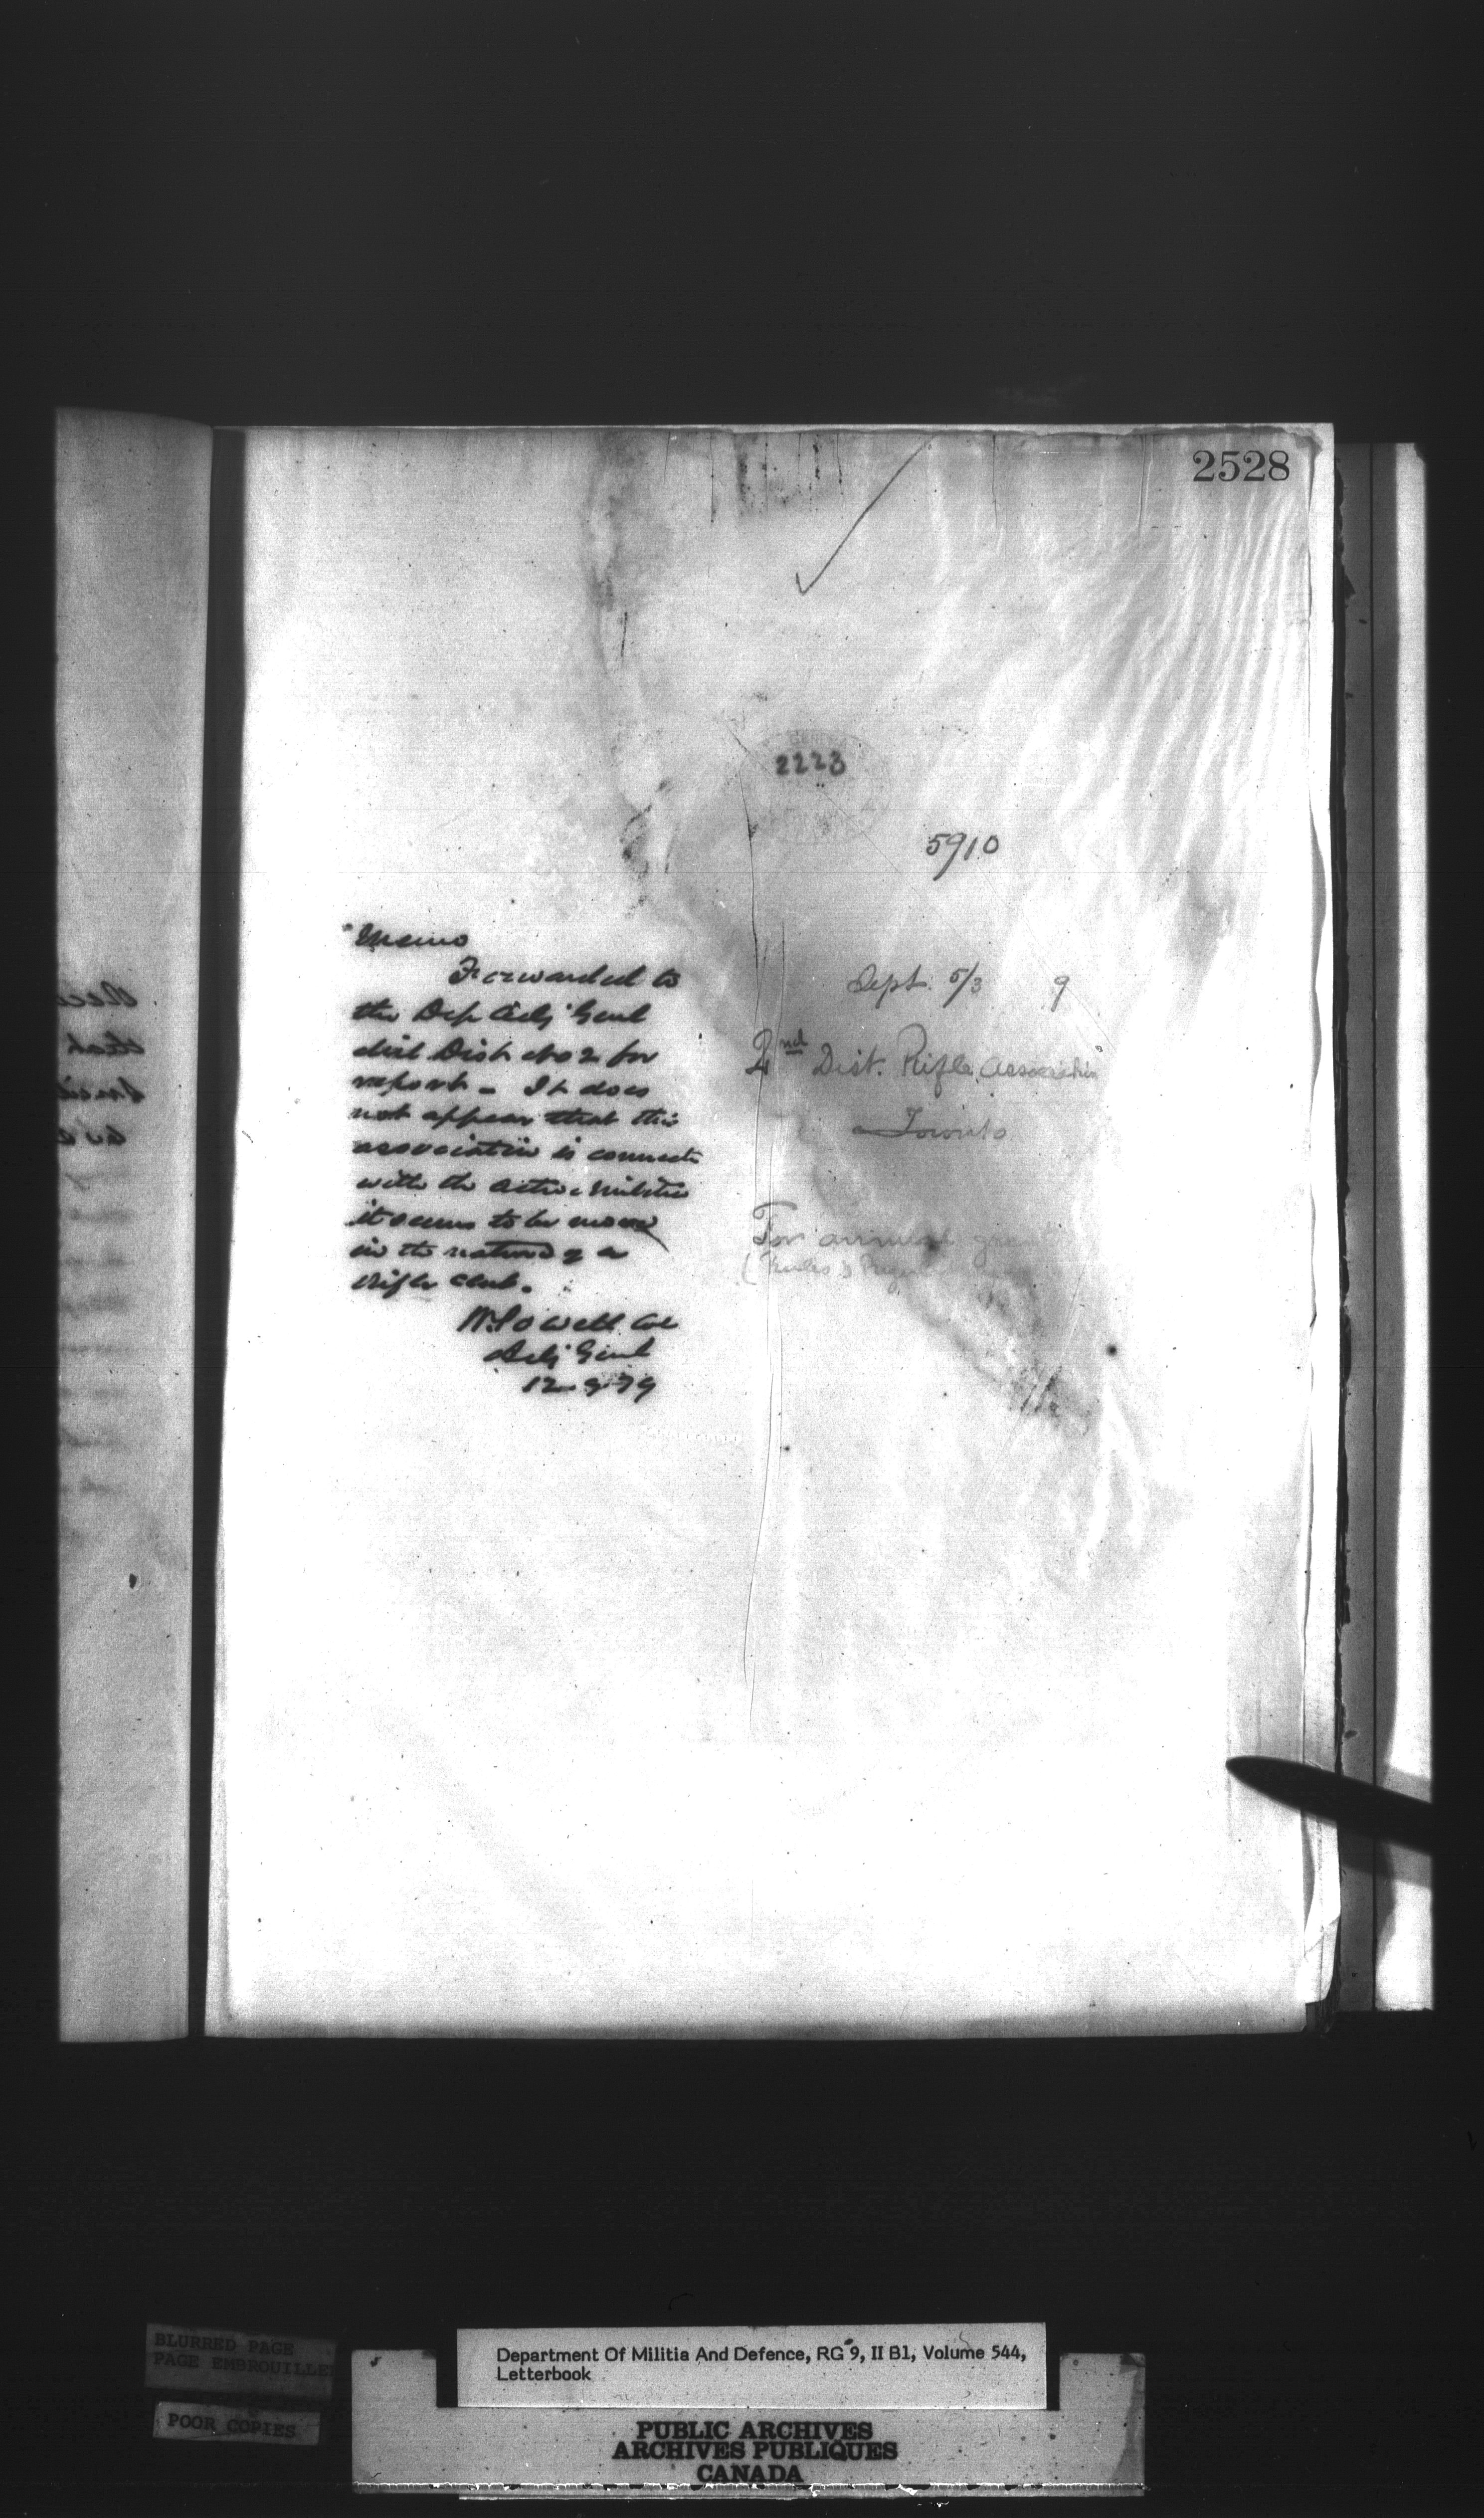 2528
2223
5910
Memo
Forwarded to
the Dep Adj Genl
Mil Dist No 2 for
report - It does
not appear that this
association is connecte
with the active Militia
it seems to be more
in the nature of a
Rifle Club.
W. Powell Col
Adj Genl
12-9-79
Sept. 5/3 9
2nd Dist. Rifle Association
Toronto
For annual
(Rules &
BLURRED PAGE
PAGE EMBROUILLEE
POOR COPIES
Department Of Militia And Defence, RG 9, II B1, Volume 544,
Letterbook
PUBLIC ARCHIVES
ARCHIVES PUBLIQUES
CANADA